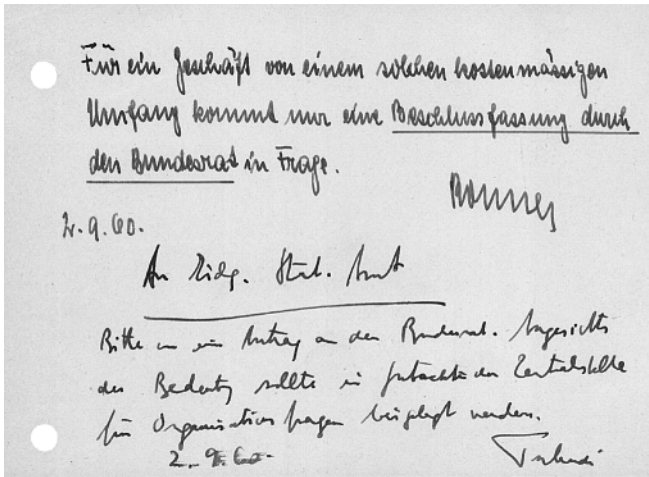 Für ein Geschäft von einem solchen kostenmässigen
Umfang kommt nur eine Beschlussfassung durch
den Bundesrat in Frage.
2.9.60.
An Eidg. Stat. Amt
Bitte um ein Antrag an den Bundesrat. Angesichts
der Bedeutung sollte ein Gutachten der Zentralstelle
für Organisationsfragen beigelegt werden.
2.9.60.
Tschudi